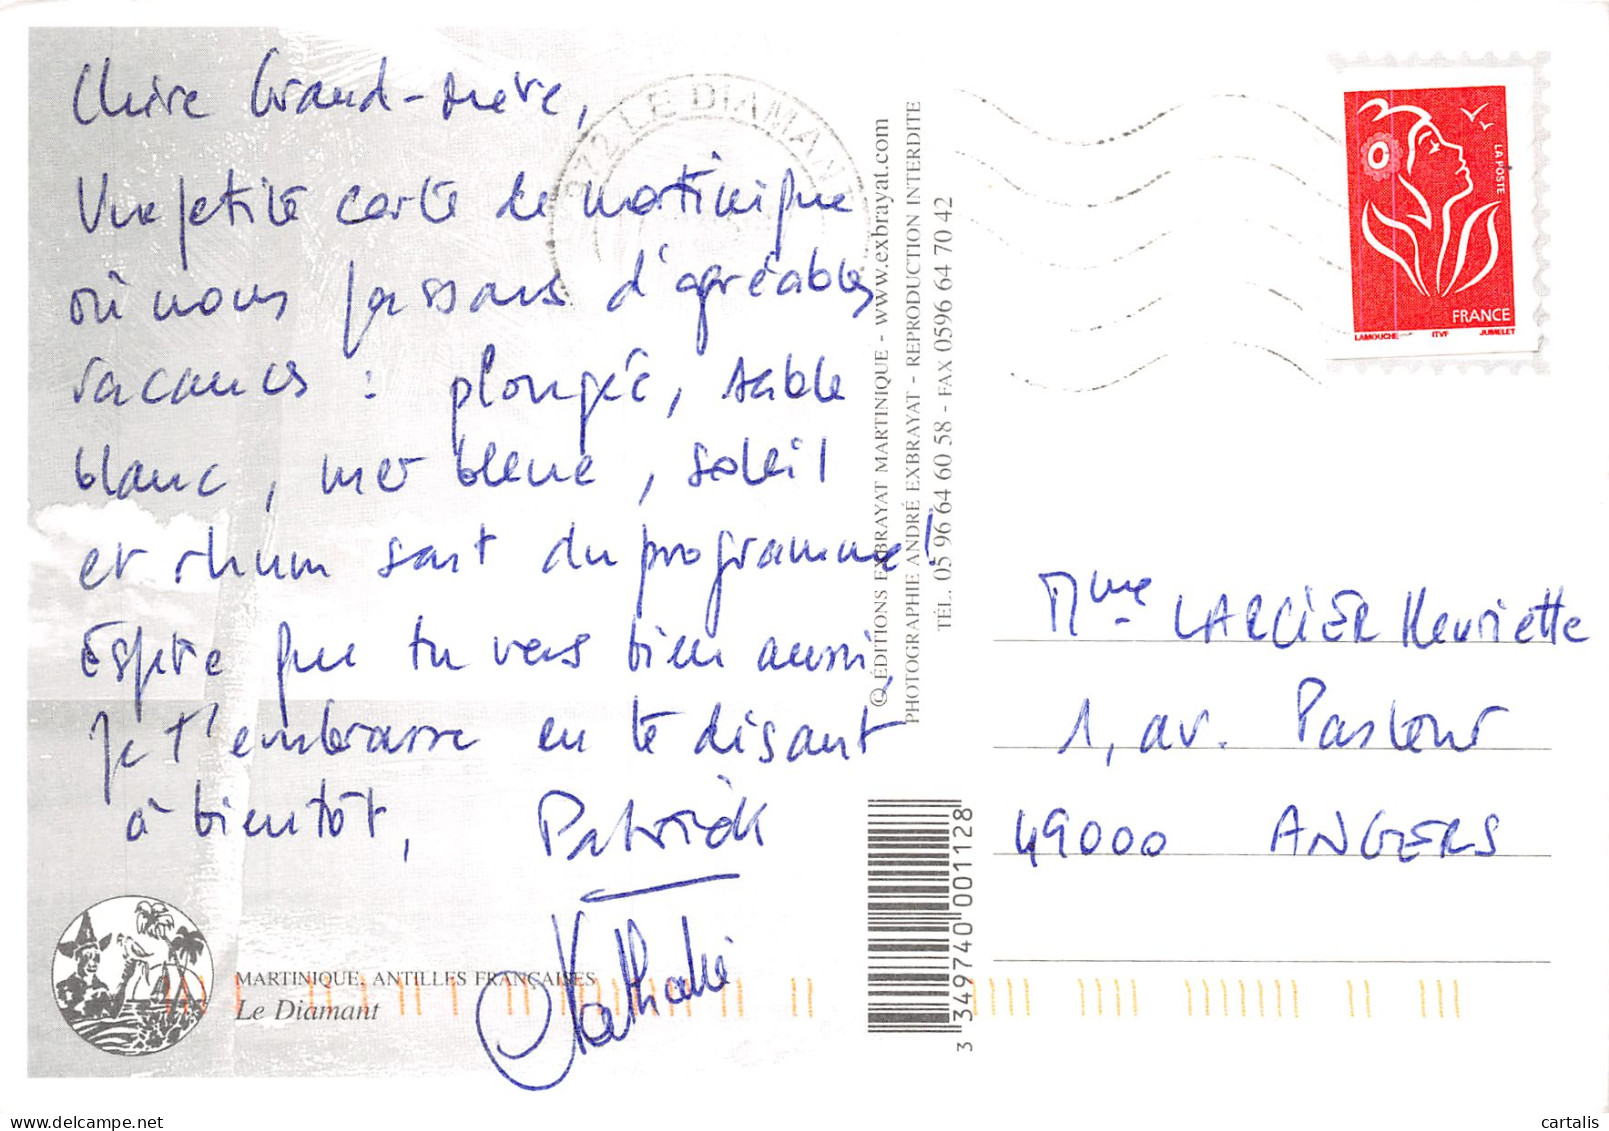 Chère Grand-mère,
Une petite carte de Martinique
où nous passons d'agréables
vacances : plongée, sable
blanc, mer bleue, soleil
et rhum sont du programme !
Espère que tu vas bien aussi,
je t'embrasse en te disant
à bientôt, Patrick
Nathalie
MARTINIQUE, ANTILLES FRANÇAISES
Le Diamant
972 LE DIAMANT
© ÉDITIONS EXBRAYAT MARTINIQUE - www.exbrayat.com
PHOTOGRAPHIE ANDRÉ EXBRAYAT - REPRODUCTION INTERDITE
TÉL. 05 96 64 60 58 - FAX 0596 64 70 42
3 349740 001128
LA POSTE
FRANCE
LAMOUCHE ITVF JUMELET
Mme LARCIER Henriette
1, av. Pasteur
49000 ANGERS
delcampe.net
cartalis